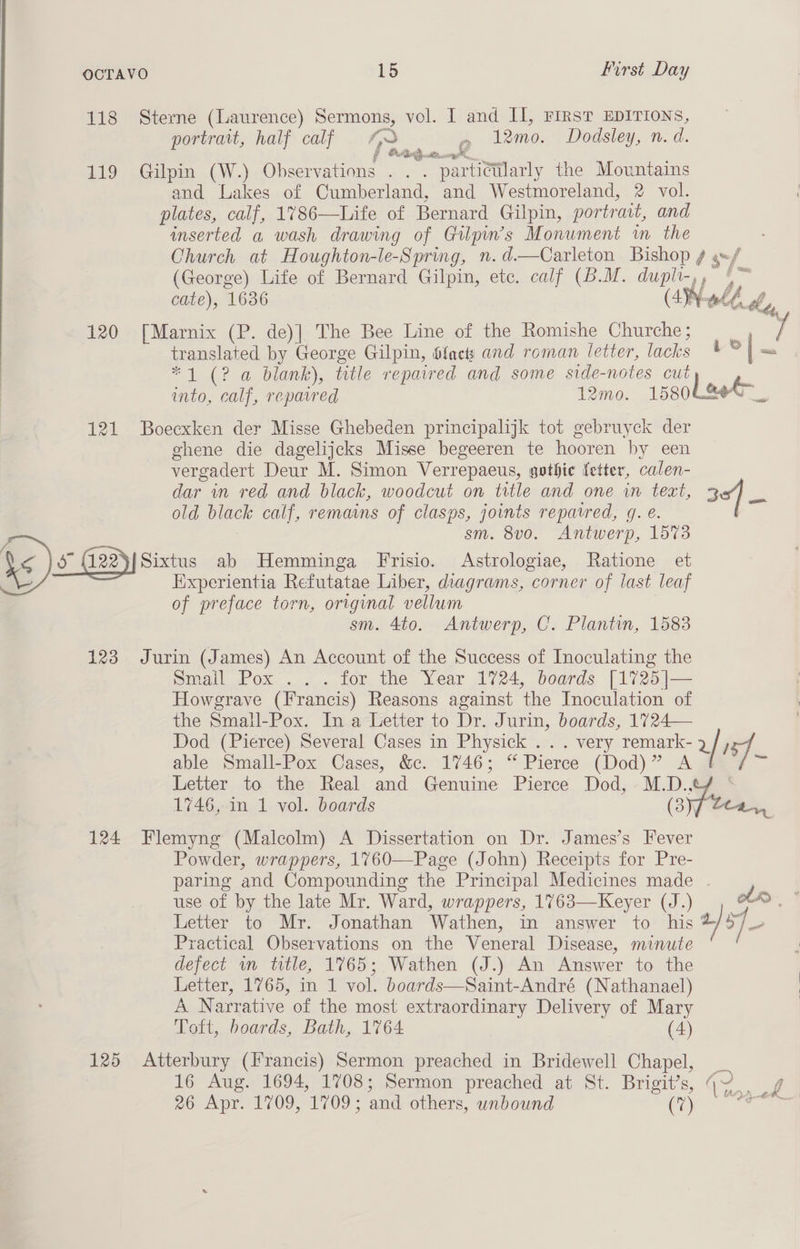 OCTAVO 15 First Day
118 Sterne (Laurence) Sermons, vol. I and II, FIRST EDITIONS,
portrait, half calf 12mo. Dodsley, n. d.
119 Gilpin (W.) Observations . . . particularly the Mountains
and Lakes of Cumberland, and Westmoreland, 2 vol.
plates, calf, 1786—Life of Bernard Gilpin, portrait, and
inserted a wash drawing of Gilpin's Monument in the
Church at Houghton-le-Spring, n. d.—Carleton Bishop
(George) Life of Bernard Gilpin, etc. calf (B.M. dupli-
cate), 1636 (4)
120 [Marnix (P. de)] The Bee Line of the Romishe Churche;
translated by George Gilpin, black and roman letter, lacks
*1 (? a blank), title repaired and some side-notes cut
into, calf, repaired 12mo. 1580
121 Boecxken der Misse Ghebeden principalijk tot gebruyck der
ghene die dagelijcks Misse begeeren te hooren by een
vergadert Deur M. Simon Verrepaeus, gothic letter, calen-
dar in red and black, woodcut on title and one in text,
old black calf, remains of clasps, joints repaired, g. e.
sm. 8vo. Antwerp, 1573
5 122 Sixtus ab Hemminga Frisio. Astrologiae, Ratione et
Experientia Refutatae Liber, diagrams, corner of last leaf
of preface torn, original vellum
sm. 4to. Antwerp, C. Plantin, 1583
123 Jurin (James) An Account of the Success of Inoculating the
Small Pox . . . for the Year 1724, boards [1725]—
Howgrave (Francis) Reasons against the Inoculation of
the Small-Pox. In a Letter to Dr. Jurin, boards, 1724—
Dod (Pierce) Several Cases in Physick . . . very remark-
able Small-Pox Cases, &c. 1746; “Pierce (Dod)” A
Letter to the Real and Genuine Pierce Dod, M.D.,
1746, in 1 vol. boards (3)
124 Flemyng (Malcolm) A Dissertation on Dr. James's Fever
Powder, wrappers, 1760—Page (John) Receipts for Pre-
paring and Compounding the Principal Medicines made
use of by the late Mr. Ward, wrappers, 1763—Keyer (J.)
Letter to Mr. Jonathan Wathen, in answer to his
Practical Observations on the Veneral Disease, minute
defect in title, 1765; Wathen (J.) An Answer to the
Letter, 1765, in 1 vol. boards—Saint-André (Nathanael)
A Narrative of the most extraordinary Delivery of Mary
Toft, boards, Bath, 1764 (4)
125 Atterbury (Francis) Sermon preached in Bridewell Chapel,
16 Aug. 1694, 1708; Sermon preached at St. Brigit's,
26 Apr. 1709, 1709; and others, unbound (7)